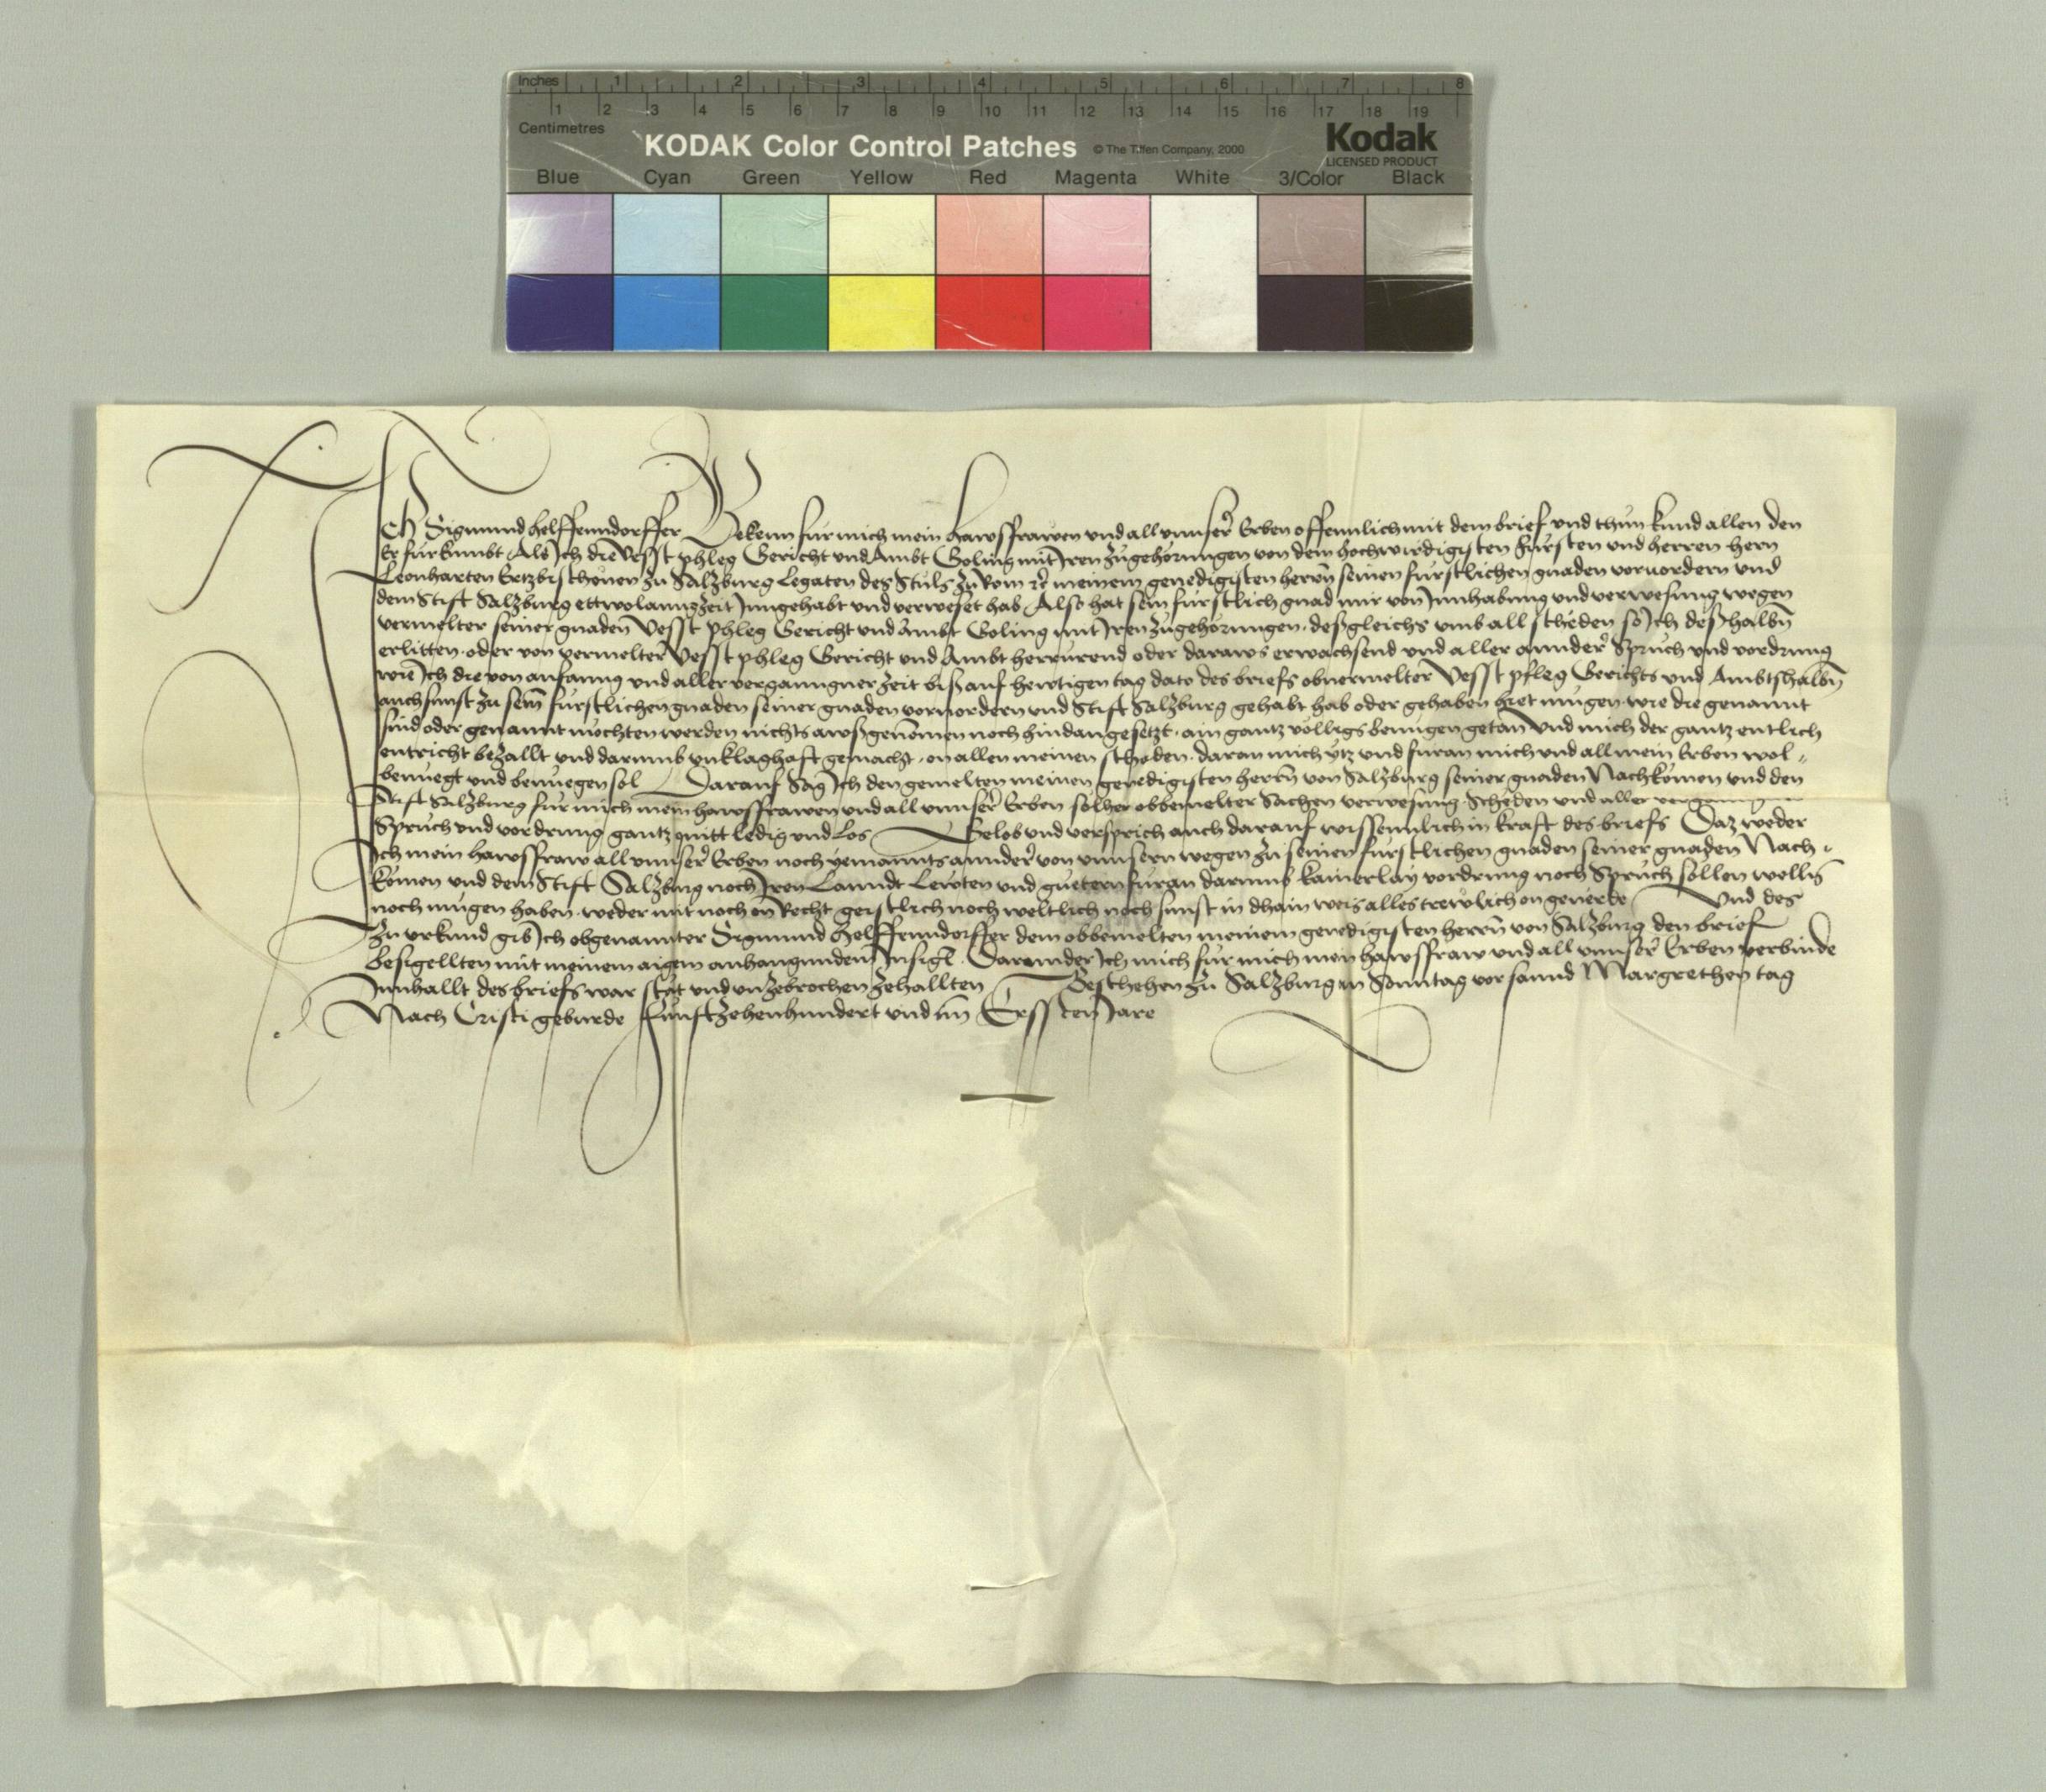 Inches 1 2 3 4 5 6 7 8
1 2 3 4 5 6 7 8 9 10 11 12 13 14 15 16 17 18 19
Centimetres
KODAK Color Control Patches © The Tiffen Company, 2000 Kodak
LICENSED PRODUCT
Blue Cyan Green Yellow Red Magenta White 3/Color Black
Ich Sigmund helffenndorffer Bekenn fur mich mein hawsfrawen und all unnser Erben offennlich mit dem brief und thun kund allen den
Er furkumbt Als Ich die Vesst phleg Gericht und Ambt Goling mit Iren zugehorungen von dem hochwirdigisten fursten und herren hern
Leonharten Ertzbischoven zu Salzburg Legaten des Stuls zu Rom etc meinem genedigisten herrn seinen furstlichen gnaden vorvordern und
dem Stift Salzburg ettwolanngzeit Inngehabt und verweset hab Also hat sein furstlich gnad mir von Innhabung und verwesung wegen
vermelter seiner gnaden Vesst phleg Gericht und Ambt Goling mit Iren zugehorungen desgleichs umb all scheden so Ich deshalbn
erlitten oder von vermelter Vesst phleg Gericht und Ambt herrurend oder daraws erwachsend und aller annder Spruch und vordrung
wie Ich die von anfanng und aller vergangner zeit bis auf hewtigen tag dato des briefs obvermelter Vesst pfleg Gerichts und Ambtshalbn
auch sunst zu sein furstlichen gnaden seiner gnaden vorvordern und Stift Salzburg gehabt hab oder gehaben hiet mugen wie die genannt
sind oder genannt mochten werden nichts awsgenomen noch hindangesetzt ain gantz volligs benugen getan Und mich der gantz entlich
entricht bezallt und darumb unklaghaft gemacht on allen meinen schaden daran mich ytz und furan mich und all mein Erben wol
benuegt und benuegen sol Darauf Sag Ich den gemelten meinen genedigisten herrn von Salzburg seiner gnaden Nachkomen und den
Stift Salzburg fur mich mein hawsfrawen und all unnser Erben solher obbemelter Sachen verwesung Scheden und aller
Spruch und vordrung gantz quitt ledig und los Gelob und versprich auch darauf wissenlich in kraft des briefs Daz weder
Ich mein hawsfraw all unnser Erben noch yemannts annder von unnsern wegen zu seinen furstlichen gnaden seiner gnaden Nach
komen und dem Stift Salzburg noch Iren Lanndt Lewten und guetern furan darumb kainerlay vordrung noch Spruch sollen wellen
noch mugen haben weder mit noch on Recht geistlich noch weltlich noch sunst in dhain weis alles trewlich on geverde Und des
zu urkund gib Ich obgenannter Sigmund Helffenndorffer dem obbemelten meinem genedigisten herrn von Salzburg den brief
besigellten mit meinem aigen anhanngunndem Insigl Darunder Ich mich fur mich mein hawsfraw und all unnser Erben verbinde
Innhallt des briefs war stat und unzebrochen zehallten Beschehen zu Salzburg an Sonntag vor sannd Margrethen tag
Nach Cristi geburde funftzehenhundert und im Erssten Jare